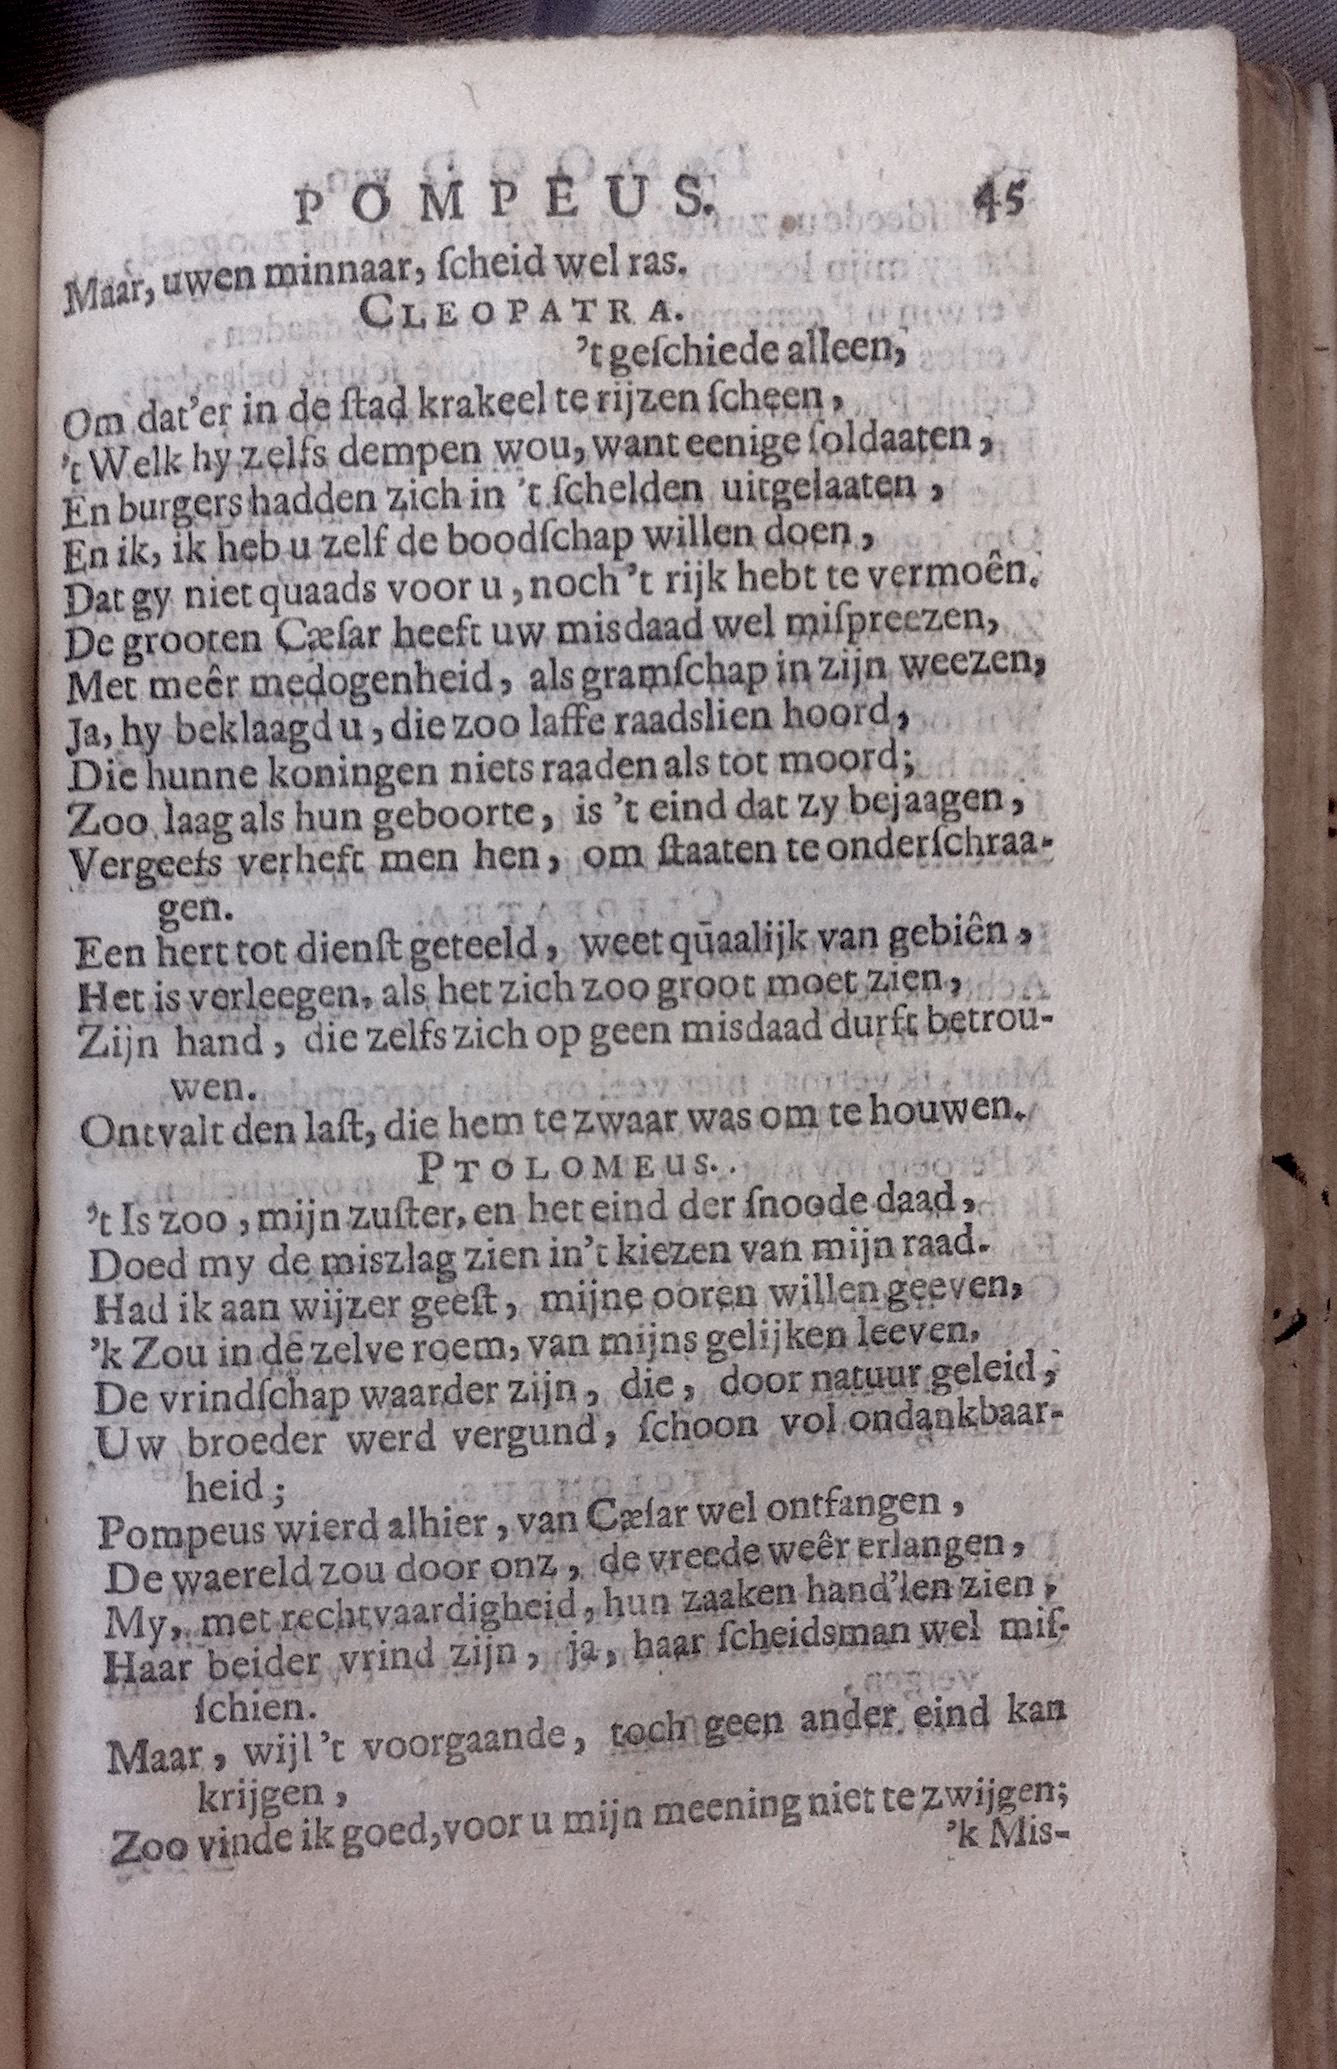 POMPEUS. 45
Maar, uwen minnaar, ſcheid wel ras.
CLEOPATRA.
't geſchiede alleen,
Om dat'er in de ſtad krakeel te rijzen ſcheen,
't Welk hy zelfs dempen wou, want eenige ſoldaaten,
En burgers hadden zich in 't ſchelden uitgelaaten,
En ik, ik heb u zelf de boodſchap willen doen,
Dat gy niet quaads voor u, noch 't rijk hebt te vermoên.
De grooten Cæſar heeft uw misdaad wel miſpreezen,
Met meêr medogenheid, als gramſchap in zijn weezen,
Ja, hy beklaagd u, die zoo laffe raadslien hoord,
Die hunne koningen niets raaden als tot moord;
Zoo laag als hun geboorte, is 't eind dat zy bejaagen,
Vergeefs verheft men hen, om ſtaaten te onderſchraa-
gen.
Een hert tot dienſt geteeld, weet quaalijk van gebiên,
Het is verleegen, als het zich zoo groot moet zien,
Zijn hand, die zelfs zich op geen misdaad durft betrou-
wen.
Ontvalt den laſt, die hem te zwaar was om te houwen.
PTOLOMEUS.
't Is zoo, mijn zuſter, en het eind der ſnoode daad,
Doed my de miszlag zien in't kiezen van mijn raad.
Had ik aan wijzer geeſt, mijne ooren willen geeven,
'k Zou in de zelve roem, van mijns gelijken leeven,
De vrindſchap waarder zijn, die, door natuur geleid,
Uw broeder werd vergund, ſchoon vol ondankbaar-
heid;
Pompeus wierd alhier, van Cæſar wel ontfangen,
De waereld zou door onz, de vreede weêr erlangen,
My, met rechtvaardigheid, hun zaaken hand'len zien,
Haar beider vrind zijn, ja, haar ſcheidsman wel miſ-
ſchien.
Maar, wijl 't voorgaande, toch geen ander eind kan
krijgen,
Zoo vinde ik goed, voor u mijn meening niet te zwijgen;
'k Mis-